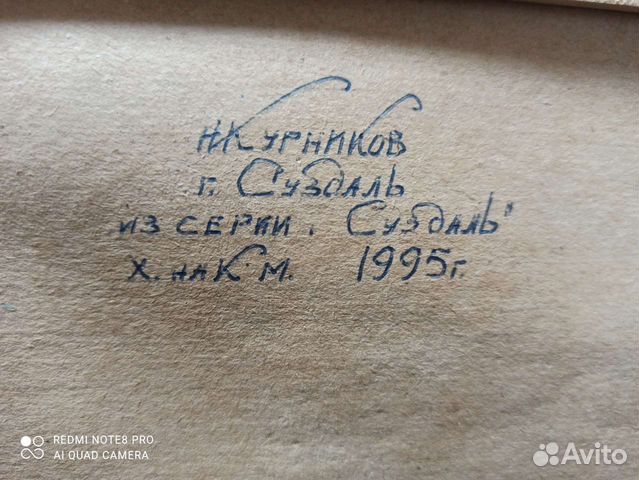 Н.Курников
г. Суздаль
из серии "Суздаль"
Х. НАК М. 1995г.
REDMI NOTE8 PRO
AI QUAD CAMERA
Avito